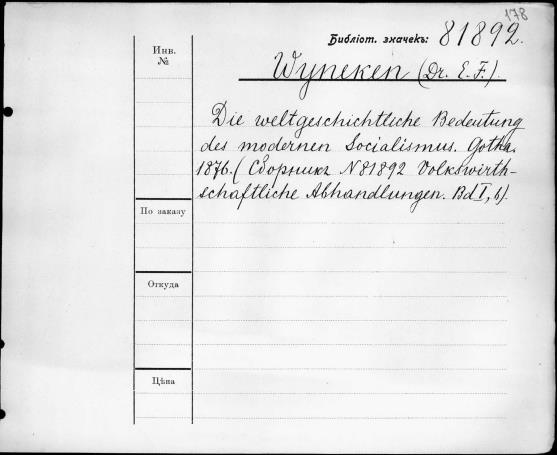 178
Библіот. значекъ: 81892.
Инв. №
Wyneken (Dr. E. F.).
Die weltgeschichtliche Bedeutung
des modernen Socialismus. Gotha.
1876. (Сборникъ N 81892 Volkswirth-
schaftliche Abhandlungen. Bd I, 6).
По заказу
Откуда
Цѣна